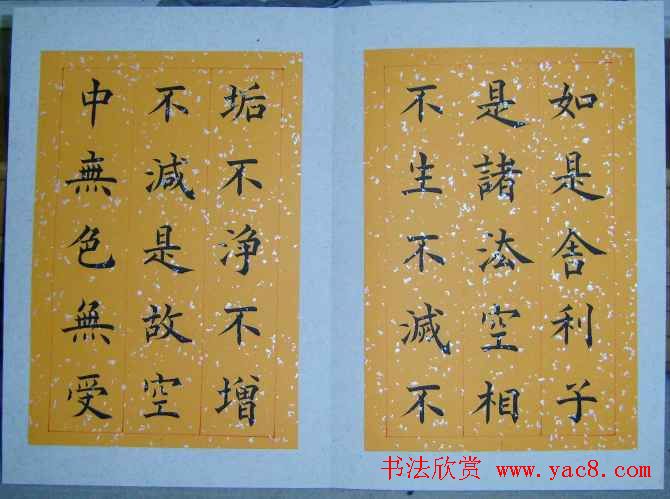 如是舍利子
是諸法空相
不生不滅不
垢不淨不增
不減是故空
中無色無受
书法欣赏 www.yac8.com